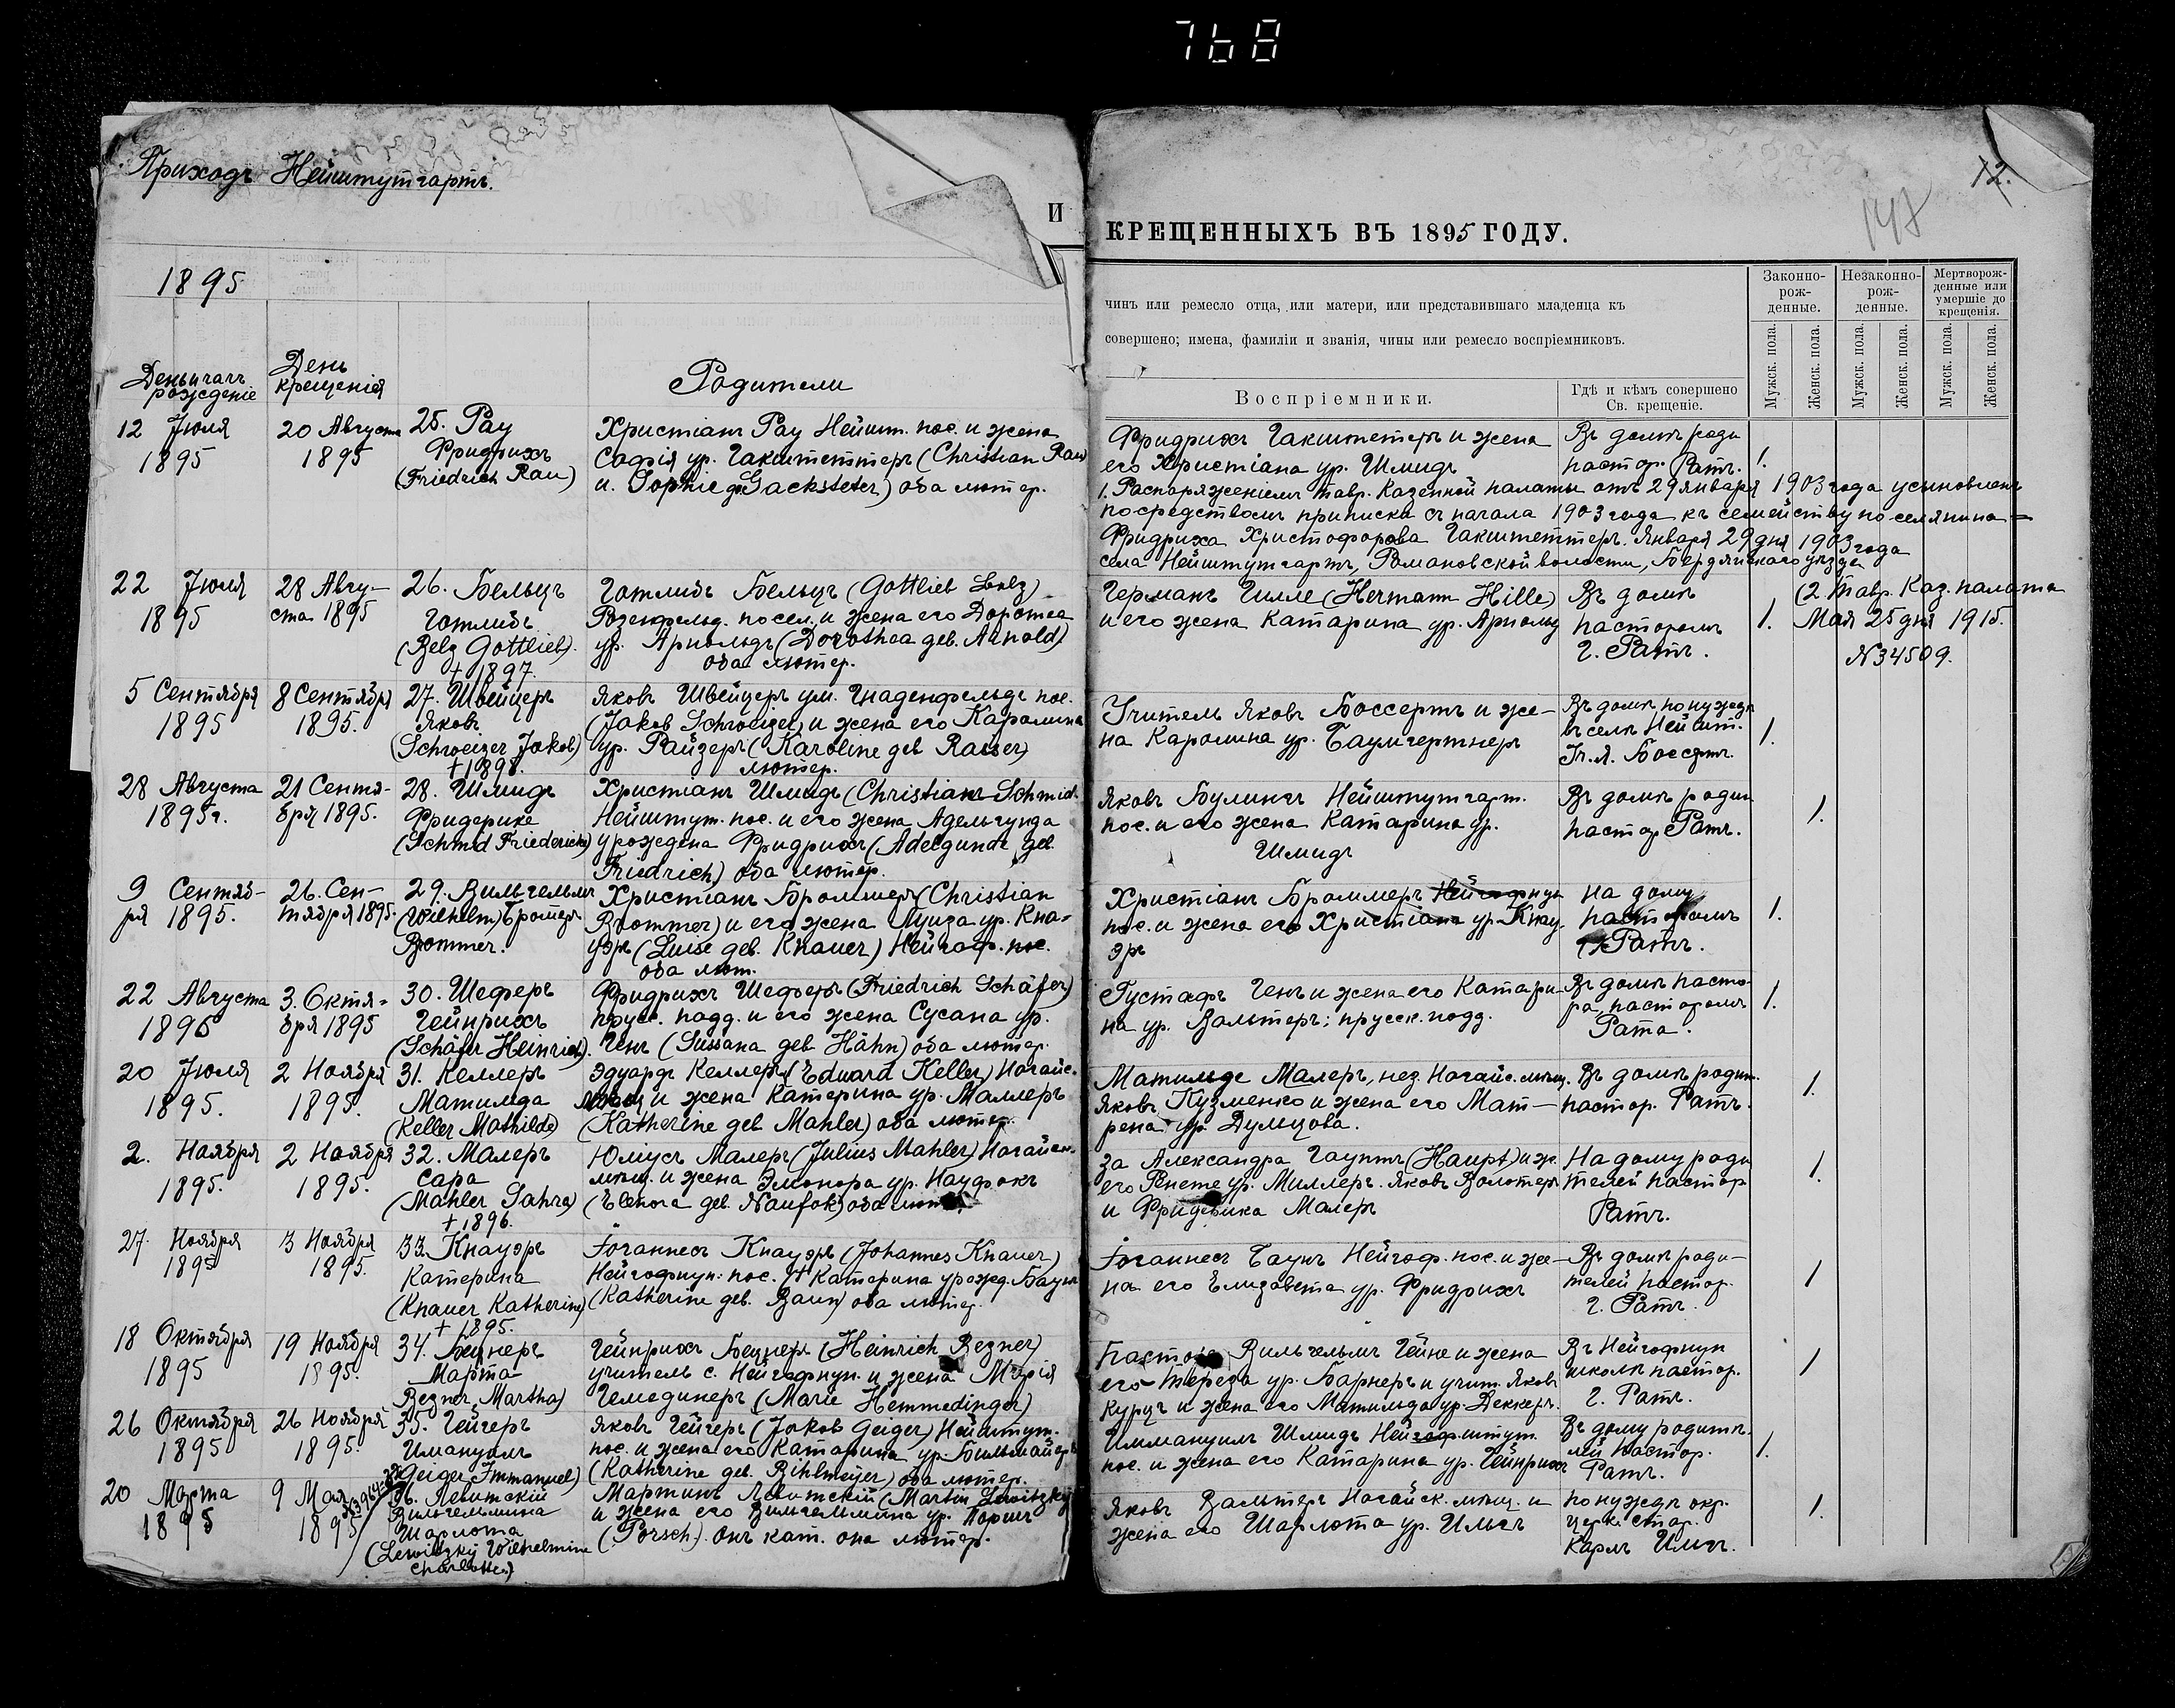 768
Приходъ Нейштутгартъ.
12.
147
И
КРЕЩЕННЫХЪ ВЪ 1895 ГОДУ.
1895
чинъ или ремесло отца, или матери, или представившаго младенца къ
совершено; имена, фамиліи и званія, чины или ремесло воспріемниковъ.
Законно-
рож-
денные.
Незаконно-
рож-
денные.
Мертворож-
денные или
умершіе до
крещенія.
Мужск. пола.
Женск. пола.
Мужск. пола.
Женск. пола.
Мужск. пола.
Женск. пола.
День и часъ
рожденіе
День
крещенія
Родители
Воспріемники.
Гдѣ и кѣмъ совершено
Св. крещеніе.
12 Іюля
1895
20 Августа
1895
25. Рау
Фридрихъ
(Friedrich Rau)
Христіанъ Рау Нейшт. пос. и жена
Софія ур. Гакштеттеръ (Christian Rau
u. Sophie g. Gacksteter) оба лютер.
Фридрихъ Гакштетеръ и жена
его Христіана ур. Шмидъ
Въ домѣ роди
пастор. Ратъ.
1.
1. Распоряженіемъ Тавр. Казенной палаты отъ 29 января 1903 года усыновленъ
посредствомъ приписки съ начала 1903 года къ семейству поселянина
Фридриха Христофорова Гакштеттеръ. Января 29 дня 1903 года
села Нейштутгартъ, Романовской волости, Бердянскаго уѣзда
22 Іюля
1895
28 Авгу-
ста 1895
26. Бельцъ
Готлибъ
(Belz Gottlieb).
+ 1897.
Готлибъ Бельцъ (Gottlieb Belz)
Розенфельд. посел. и жена его Доротеа
ур. Арнольдъ (Dorothea geb. Arnold)
оба лютер.
Германъ Гилле (Hermann Hille)
и его жена Катарина ур. Арнольд
Въ домѣ
пасторомъ
Г. Ратъ.
1.
(2. Тавр. Каз. палата
Мая 25 дня 1915.
N 34509.
5 Сентября
1895
8 Сентября
1895.
27. Швейцеръ
Яковъ
(Schweizer Jakob)
Яковъ Швейцеръ им. Гнаденфельдъ пос.
(Jakob Schweizer) и жена его Каролина
ур. Райзеръ (Karoline geb Raiser)
лютер.
Учитель Яковъ Боссертъ и же-
на Каролина ур. Баумгертнеръ
Въ домѣ по нуждѣ
въ селѣ Нейшт.
Я. Боссертъ.
1.
28 Августа
1895 г.
21 Сентя-
бря 1895.
28. Шмидъ
Фридерике
(Schmid Friederich)
Христіанъ Шмидъ (Christian Schmid
Нейштут. пос. и его жена Адельгунда
урождена Фридрихъ (Adelgunde geb
Friedrich) оба лютер.
Яковъ Булингъ Нейштутгарт.
пос. и его жена Катарина ур.
Шмидъ
Въ домѣ родит
пастор Ратъ.
1.
9 Сентяб-
ря 1895.
26. Сен-
тября 1895.
29. Вильгельмъ
(Wilhelm) Бромеръ
Brommer.
Христіанъ Броммеръ (Christian
Brommer) и его жена Луиза ур. Кна-
уэръ (Luise geb. Knauer) Нейгоф. пос.
оба лют.
Христіанъ Броммеръ Нейгофнун
пос. и жена его Христіана ур. Кнау
эръ
на дому
пасторомъ
Ратъ.
1.
22 Августа
1895
3. Октя-
бря 1895
30. Шеферъ
Гейнрихъ
(Schäfer Heinrich).
Фридрихъ Шеферъ (Friedrich Schäfer)
прусс. подд. и его жена Сусана ур.
Генъ (Sussana geb Hähn) оба лютер.
Густафъ Генъ и жена его Катари-
на ур. Вальтеръ; прусск. подд.
Въ домѣ пасто-
ра, пасторомъ
Рата.
1.
20 Іюля
1895.
2 Ноября
1895.
31. Келлеръ
Матильда
(Keller Mathilde)
Эдуардъ Келлеръ (Edward Keller) Ногайс.
и жена Катерина ур. Маллеръ
(Katherine geb Mahler) оба лютер.
Матильде Малеръ, нез. Ногайс. мѣщ.
Яковъ Кузменко и жена его Мат-
рена ур. Думцова.
Въ домѣ родит.
пастор. Ратъ.
1.
2. Ноября
1895.
2 Ноября
1895.
32. Малеръ
Сара
(Mahler Sahra)
+ 1896.
Юлиусъ Малеръ (Julius Mahler) Ногайск.
мѣщ. и жена Элеонора ур. Науфокъ
(Elenora geb. Naufok) оба лют.
за Александра Гауптъ (Haupt) и ж.
его Ренете ур. Миллеръ. Яковъ Волотеръ
и Фридерика Малеръ
На дому роди
телей пастор
Ратъ.
1.
27. Ноября
1895
3 Ноября
1895.
33. Кнауэръ
Катерина
(Knauer Katherine)
+ 1895.
Іоганнесъ Кнауэръ (Johannes Knauer)
Нейгофнун. пос. и Катерина урожд. Баунъ
(Katherine geb. Baun) оба лютер.
Іоганнесъ Баунъ Нейгоф. пос. и же-
на его Елизавета ур. Фридрихъ
Въ домѣ роди-
телей пастор.
г. Ратъ.
1
18 Октября
1895
19 Ноября
1895.
34. Бецнеръ
Марта
Bezner, Martha)
Гейнрихъ Бецнеръ (Heinrich Bezner)
учитель с. Нейгофнун. и жена Марія
Гемединеръ (Marie Hemmedinger)
Пасторъ Вильгельмъ Гейне и жена
его Тереза ур. Барнеръ и учит. Яковъ
Курцъ и жена его Матильда ур. Деккеръ.
Въ Нейгофнун
школѣ пастор.
г. Ратъ.
1
26 Октября
1895
26 Ноября
1895.
35. Гейгеръ
Имануилъ
Geiger, Immanuel)
Яковъ Гейгеръ (Jakob Geiger) Нейштут.
пос. и жена его Катарина ур. Бильмайеръ
(Katherine geb. Bihlmeyer) оба лютер.
Иммануилъ Шмидъ Нейштут.
пос. и жена его Катарина ур. Гейнрихъ
Въ дому родите-
лей пастор.
Ратъ.
1.
20 Марта
1895
9 Мая
1895
36. Левитскій
Вильгельмина
Шарлота
(Lewitzky Wilhelmine
Charlotte)
Мартинъ Левитскій (Martin Lewitzky
и жена его Вильгельмина ур. Поршъ
(Porsch). онъ кат. она лютер.
Яковъ Вальтеръ Ногайск. мѣщ. и
жена его Шарлота ур. Ильгъ
по нуждѣ окр.
церк. стар.
Карлъ Ильгъ.
1.